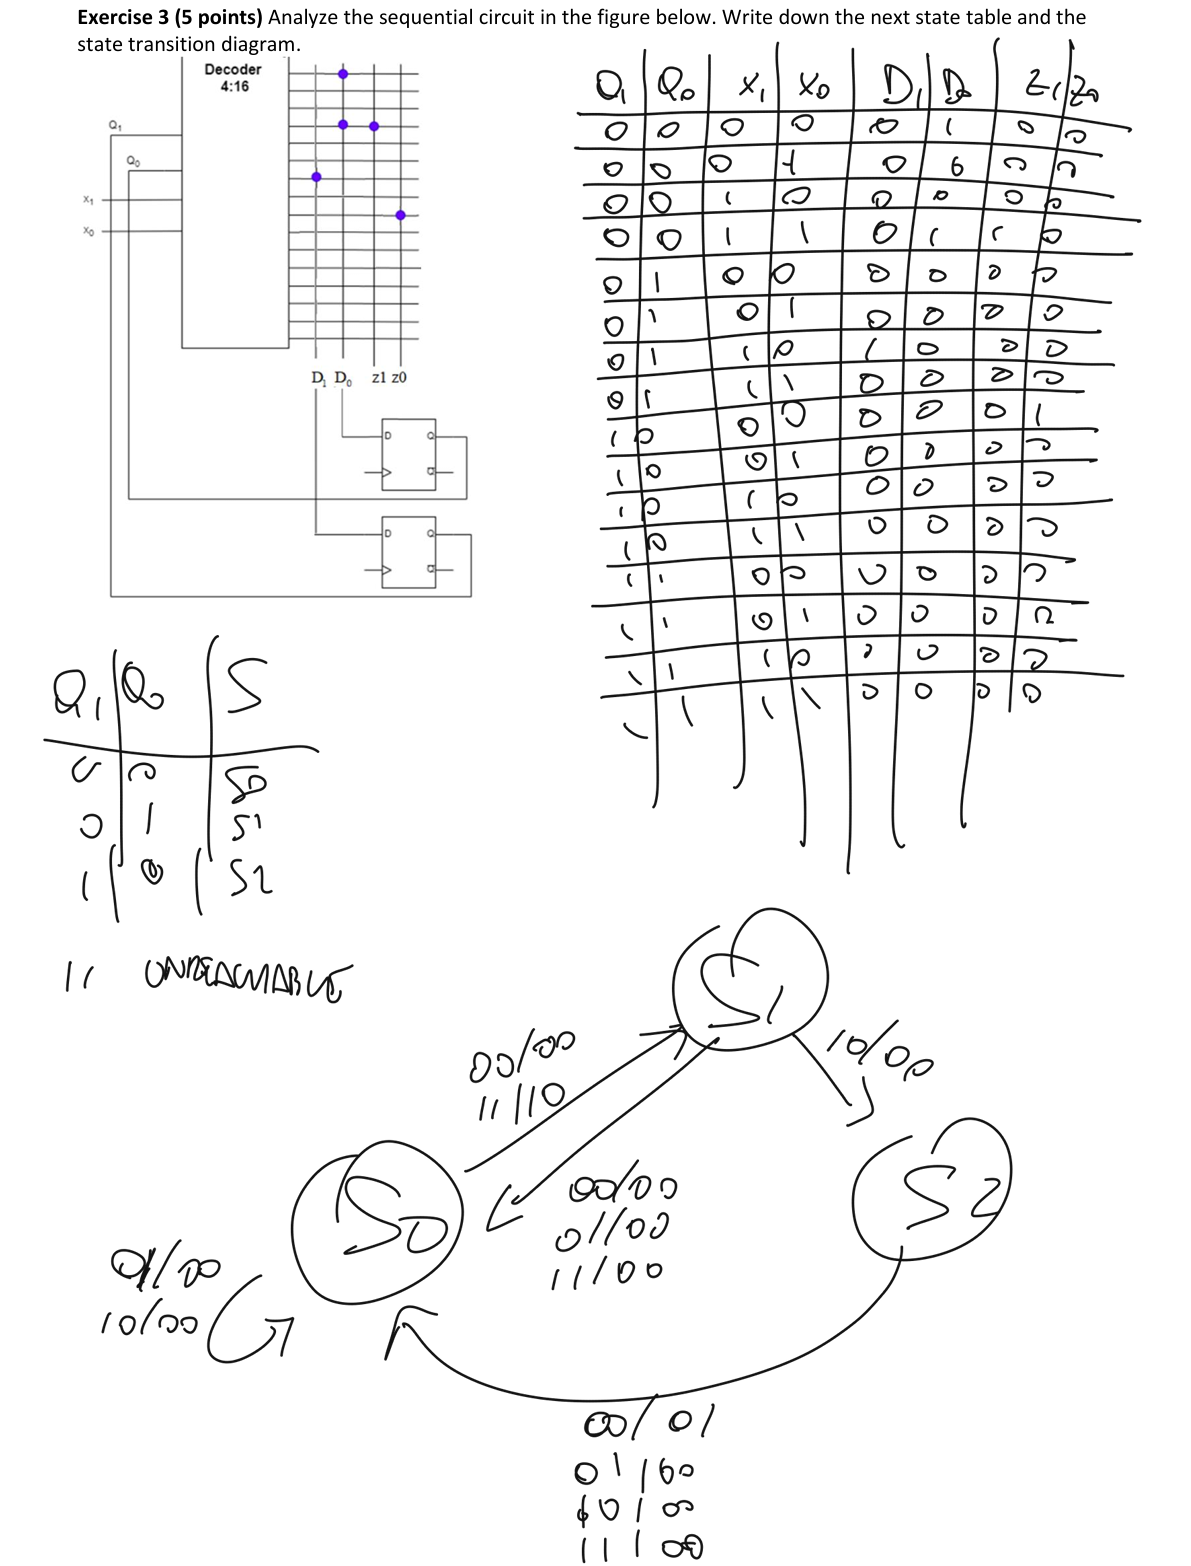 Exercise 3 (5 points) Analyze the sequential circuit in the figure below. Write down the next state table and the
state transition diagram.
Decoder
4:16
Q1
Q0
x1
x0
D1 D0 z1 z0
D Q
Q
D Q
Q
Q1 Q0 X1 X0 D1 D0 Z1 Z0
0 0 0 0 0 1 0 0
0 0 0 1 0 0 0 0
0 0 1 0 0 0 0 0
0 0 1 1 0 1 1 0
0 1 0 0 0 0 0 0
0 1 0 1 0 0 0 0
0 1 1 0 1 0 0 0
0 1 1 1 0 0 0 0
1 0 0 0 0 0 0 1
1 0 0 1 0 0 0 0
1 0 1 0 0 0 0 0
1 0 1 1 0 0 0 0
1 1 0 0 0 0 0 0
1 1 0 1 0 0 0 0
1 1 1 0 0 0 0 0
1 1 1 1 0 0 0 0
Q1 Q0 S
0 0 S0
0 1 S1
1 0 S2
11 UNREACHABLE
S1
00/00
11/10
10/00
S0
S2
00/00
01/00
11/00
01/00
10/00
00/01
01/00
10/00
11/00